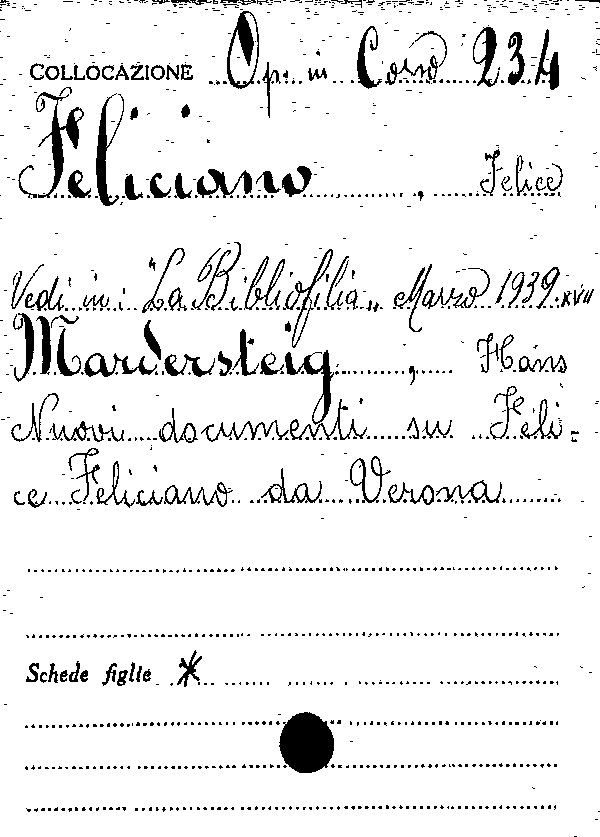 COLLOCAZIONE Op. in Corso 234
Feliciano, Felice
Vedi in: "La Bibliofilia„ Marzo 1939. XVII
Mardersteig, Hans
Nuovi documenti su Feli=
ce Feliciano da Verona
Schede figlie *